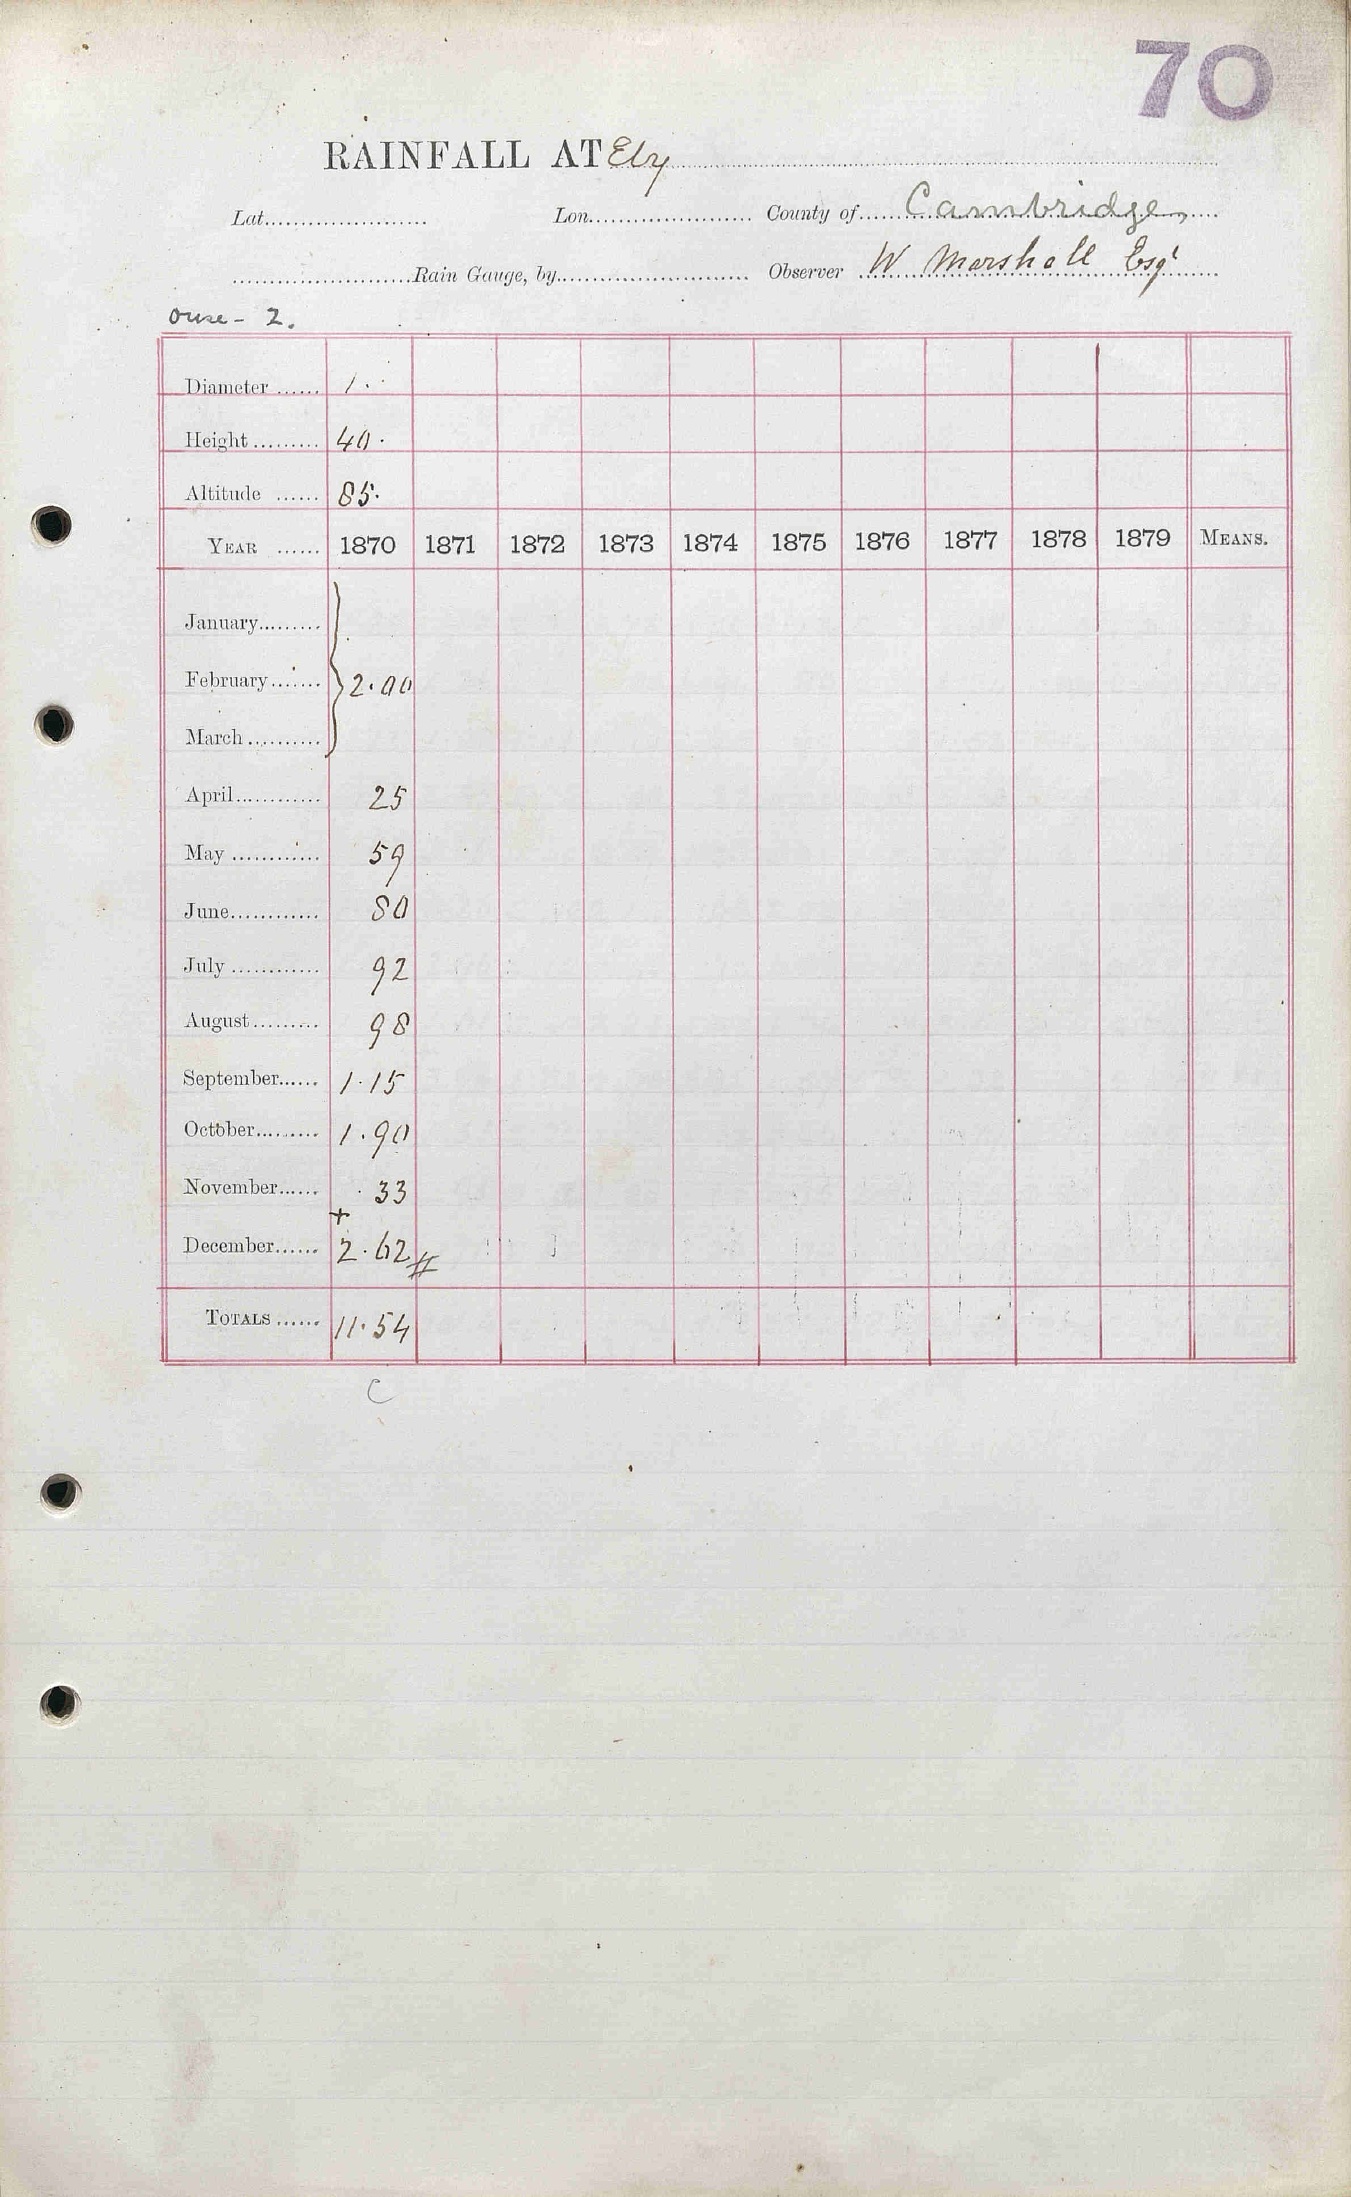 70
RAINFALL AT Ely
Lat........................ Lon........................ County of Cambridge
........................Rain Gauge, by........................ Observer W Marshall Esqr
Ouse - 2.
Diameter ...... 1.
Height ......... 40.
Altitude ...... 85.
YEAR ...... 1870 1871 1872 1873 1874 1875 1876 1877 1878 1879 MEANS.
January.........
February....... } 2.00
March ..........
April............ 25
May ............ 59
June............ 80
July ............ 92
August......... 98
September...... 1.15
October......... 1.90
November...... .33
+
December...... 2.62 #
TOTALS ...... 11.54
C